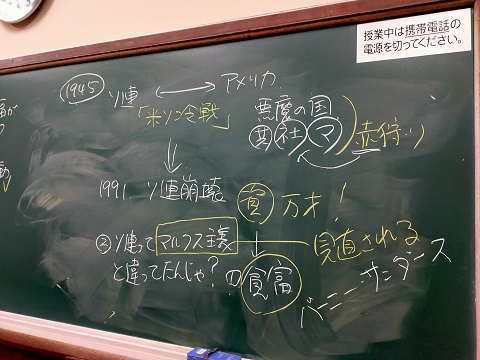 授業中は携帯電話の
電源を切ってください。
1945 ソ連 ⟷ アメリカ
「米ソ冷戦」
悪魔の国
共 社 マ 赤狩り
1991 ソ連崩壊
万才!
②ソ連ってマルクス主義 見直される
と違ってたんじゃ? の貧富
バーニー・サンダース